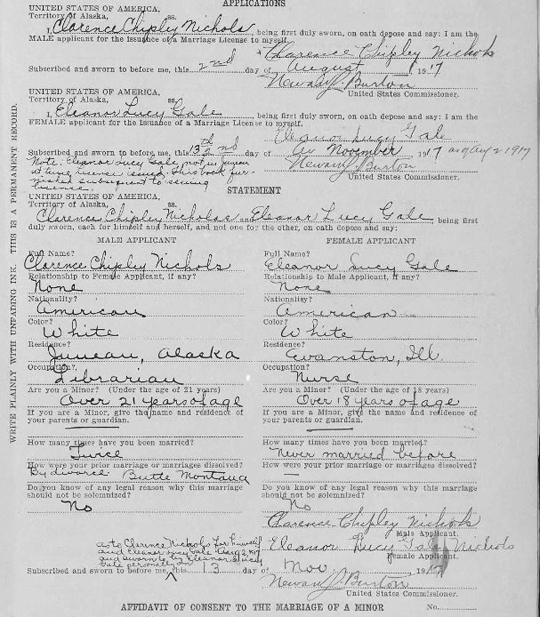 APPLICATIONS
UNITED STATES OF AMERICA,
Territory of Alaska, ss.
I, Clarence Chipley Nichols, being first duly sworn, on oath depose and say: I am the
MALE applicant for the Issuance of a Marriage License to myself.
Clarence Chipley Nichols
Subscribed and sworn to before me, this 2nd day of August, 1917
Newark L. Burton
United States Commissioner.
UNITED STATES OF AMERICA,
Territory of Alaska, ss.
I, Eleanor Lucy Gale, being first duly sworn, on oath depose and say: I am the
FEMALE applicant for the Issuance of a Marriage License to myself.
Eleanor Lucy Gale
Subscribed and sworn to before me, this 13th 2nd day of November, 1917 as of Aug 2 1917
Note: Eleanor Lucy Gale, not in Juneau
at time license issued. This book
subsequent to
license.
Newark L. Burton
United States Commissioner.
STATEMENT
UNITED STATES OF AMERICA,
Territory of Alaska, ss.
Clarence Chipley Nichols and Eleanor Lucy Gale being first
duly sworn, each for himself and herself, and not one for the other, on oath depose and say:
MALE APPLICANT
Full Name?
Clarence Chipley Nichols
Relationship to Female Applicant, if any?
None
Nationality?
American
Color?
White
Residence?
Juneau, Alaska
Occupation?
Librarian
Are you a Minor? (Under the age of 21 years)
Over 21 years of age
If you are a Minor, give the name and residence of
your parents or guardian.
How many times have you been married?
Twice
How were your prior marriage or marriages dissolved?
By divorce Butte Montana
Do you know of any legal reason why this marriage
should not be solemnized?
No
FEMALE APPLICANT
Full Name?
Eleanor Lucy Gale
Relationship to Male Applicant, if any?
None
Nationality?
American
Color?
White
Residence?
Evanston, Ill.
Occupation?
Nurse
Are you a Minor? (Under the age of 18 years)
Over 18 years of age
If you are a Minor, give the name and residence of
your parents or guardian.
How many times have you been married?
Never married before
How were your prior marriage or marriages dissolved?
Do you know of any legal reason why this marriage
should not be solemnized?
No
Clarence Chipley Nichols
Male Applicant.
Eleanor Lucy Gale Nichols
Female Applicant.
as to Clarence Nichols for himself
and Eleanor Lucy Gale Aug 2 1917
and sworn to by Eleanor Lucy
Gale personally on
Subscribed and sworn to before me, this 13 day of Nov. 1917
Newark L. Burton
United States Commissioner.
AFFIDAVIT OF CONSENT TO THE MARRIAGE OF A MINOR No.
WRITE PLAINLY WITH UNFADING INK. THIS IS A PERMANENT RECORD.